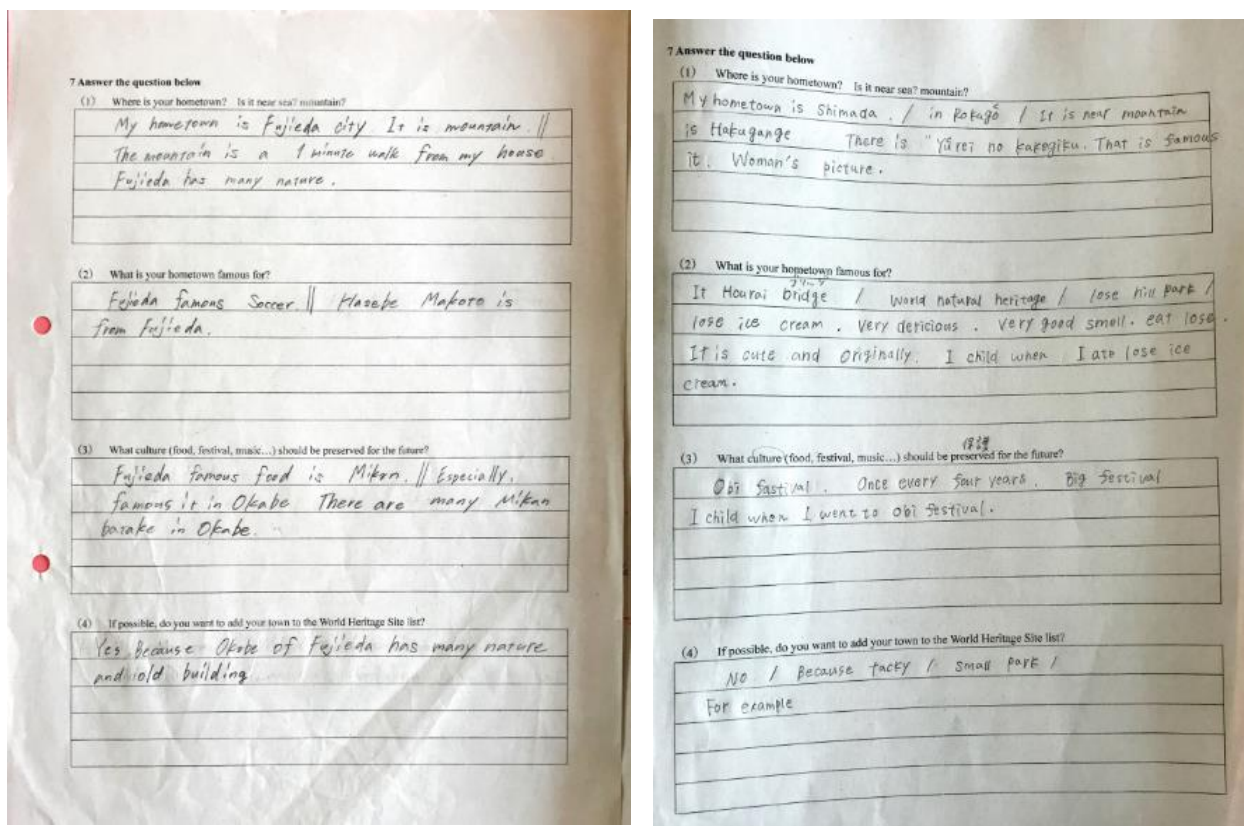 7 Answer the question below
(1) Where is your hometown? Is it near sea? mountain?
My hometown is Fujieda city It is mountain. ||
The mountain is a 1 minute walk from my house
Fujieda has many nature.
(2) What is your hometown famous for?
Fejieda famous Soccer. || Hasebe Makoto is
from Fujieda.
(3) What culture (food, festival, music...) should be preserved for the future?
Fujieda famous food is Mikan. || Especially,
famous it in Okabe There are many Mikan
batake in Okabe.
(4) If possible, do you want to add your town to the World Heritage Site list?
Yes Because Okabe of Fujieda has many nature
and old building
7 Answer the question below
(1) Where is your hometown? Is it near sea? mountain?
My hometown is Shimada. / in Rokagō / It is near mountain
is Hakugange There is "Yūrei no kakegiku. That is famous
it. Woman's picture.
(2) What is your hometown famous for?
ブリッヂ
It Hourai bridge / World natural heritage / lose hill park /
lose ice cream. very dericious. very good smell. eat lose.
It is cute and originally. I child when I ate lose ice
cream.
保護
(3) What culture (food, festival, music...) should be preserved for the future?
Obi fastival. Once every four years. Big festival
I child when I went to obi festival.
(4) If possible, do you want to add your town to the World Heritage Site list?
No / Because tacky / small park /
For example